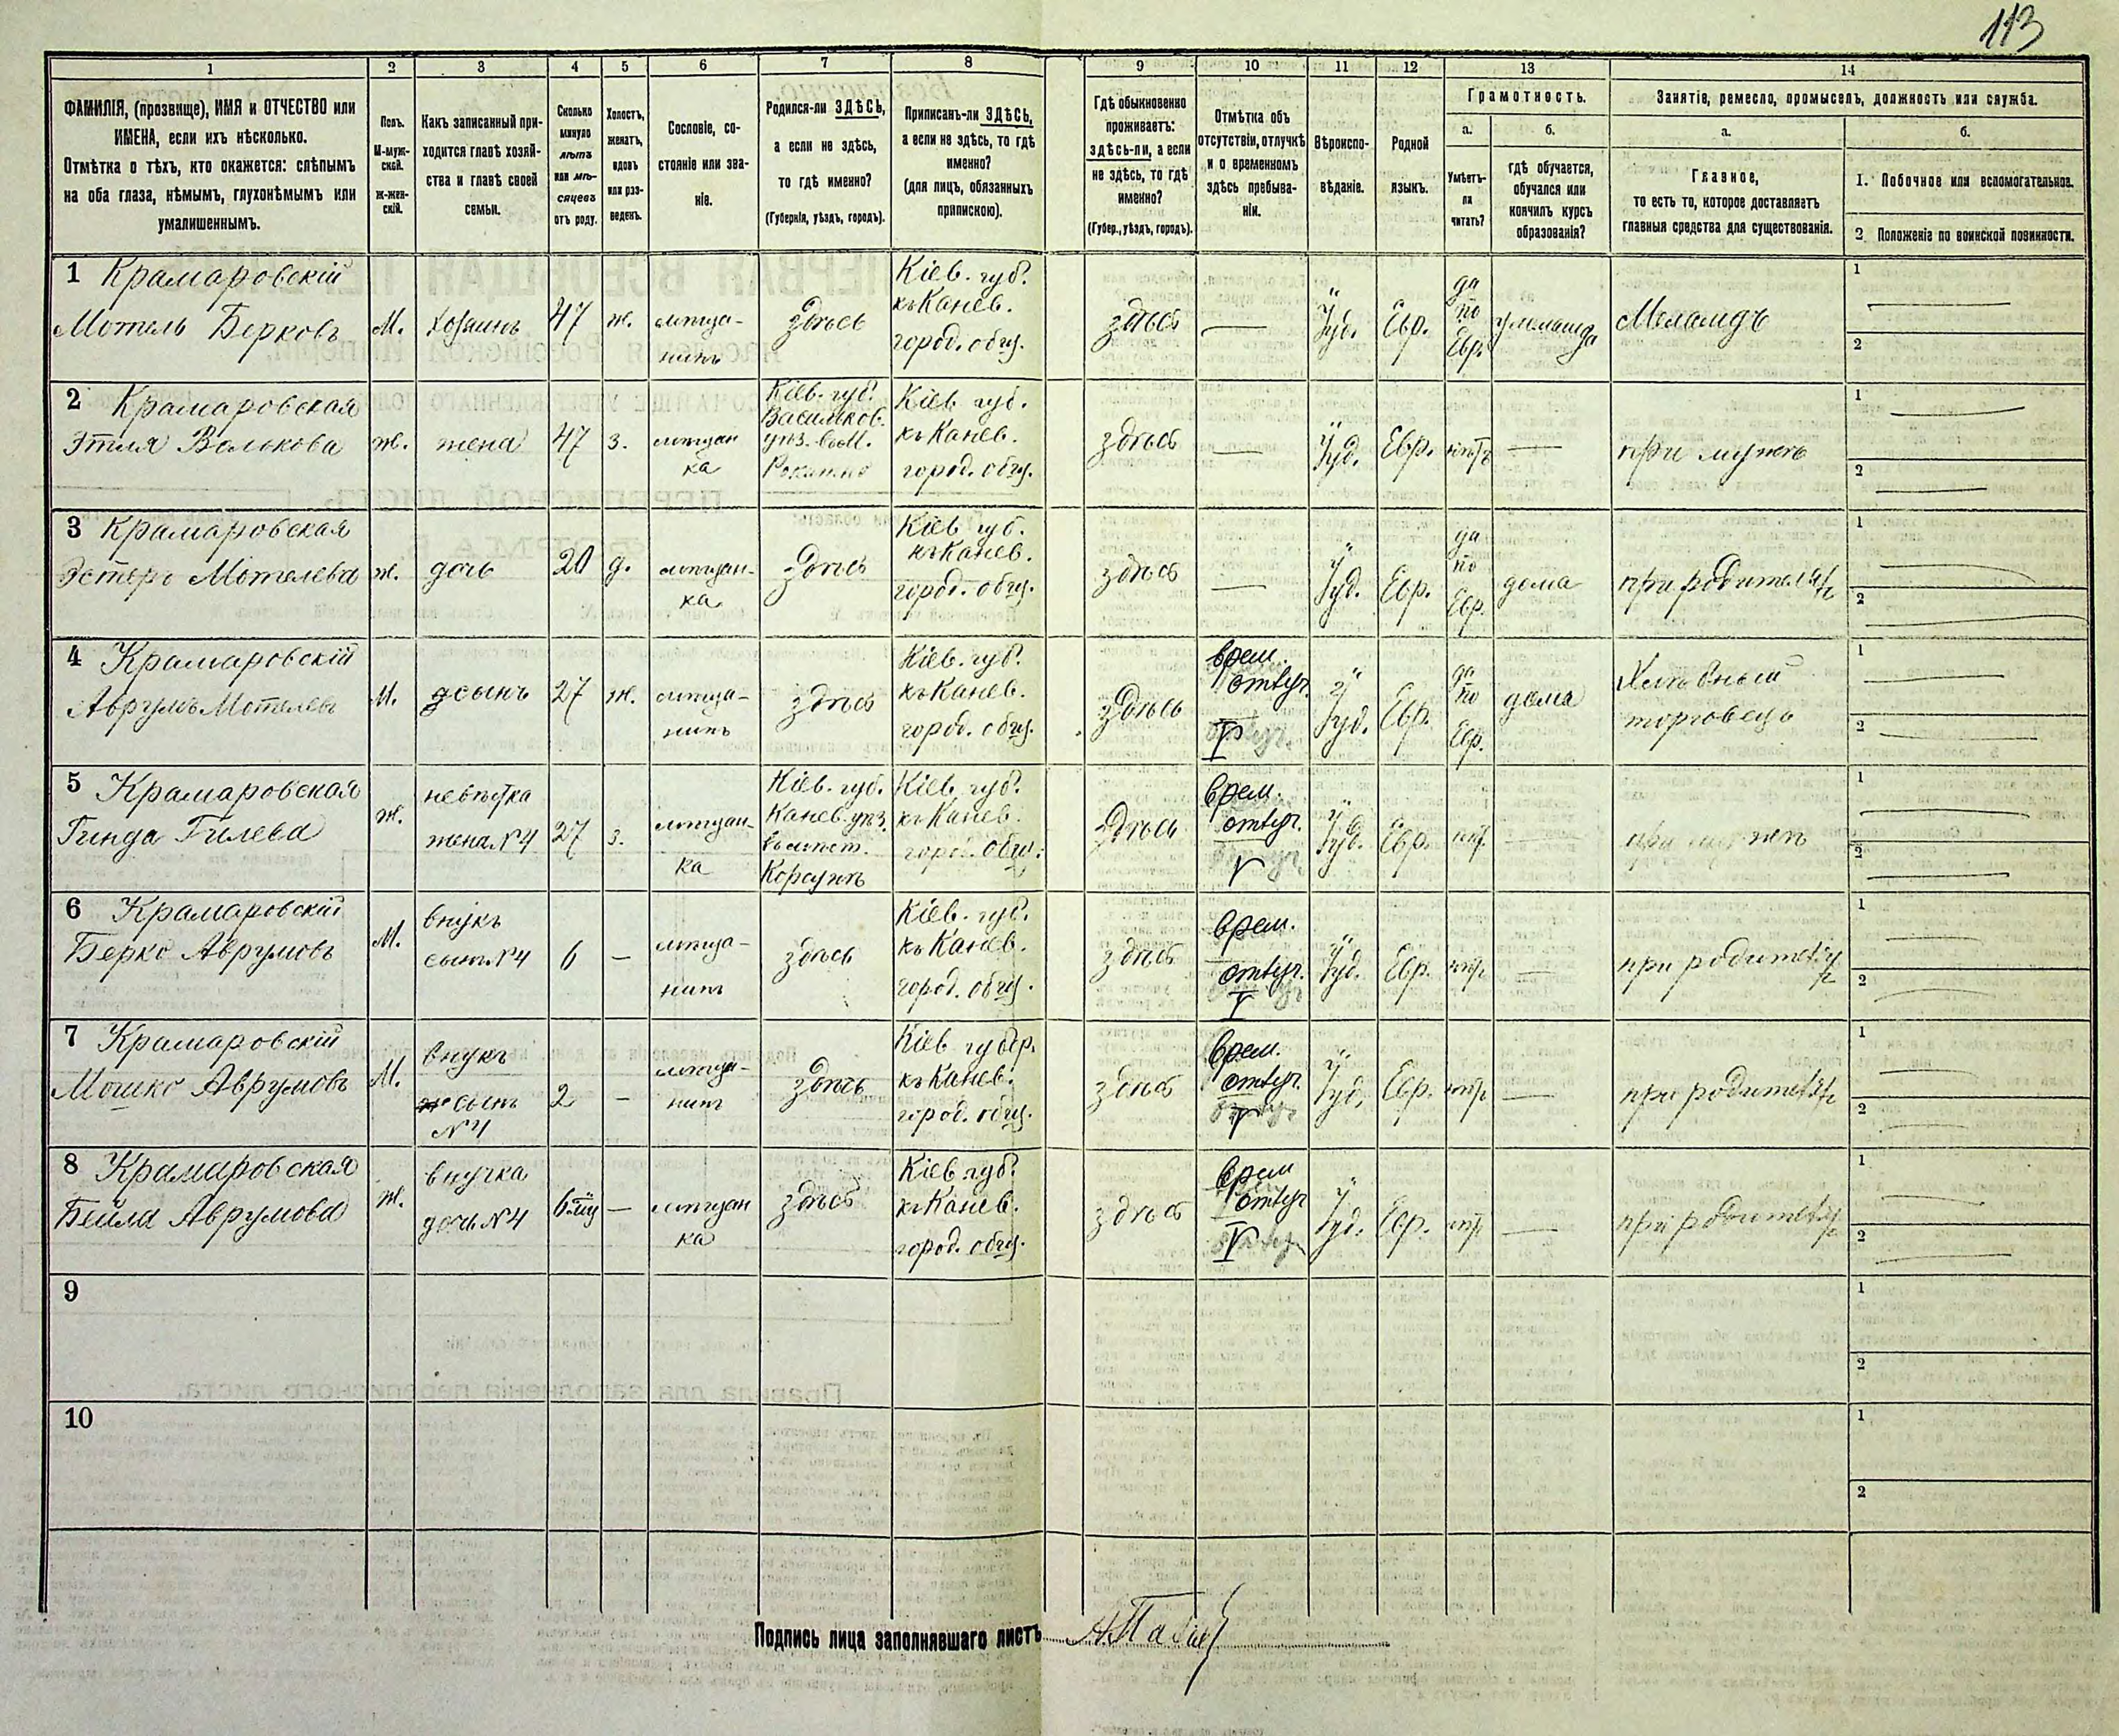 113
1 2 3 4 5 6 7 8 9 10 11 12 13 14
ФАМИЛІЯ, (прозвище), ИМЯ и ОТЧЕСТВО или
ИМЕНА, если ихъ нѣсколько.
Отмѣтка о тѣхъ, кто окажется: слѣпымъ
на оба глаза, нѣмымъ, глухонѣмымъ или
умалишеннымъ.
Полъ.
М-муж-
ской.
Ж-жен-
скій.
Какъ записанный при-
ходится главѣ хозяй-
ства и главѣ своей
семьи.
Сколько
минуло
лѣтъ
или мѣ-
сяцевъ
отъ роду.
Холостъ,
женатъ,
вдовъ
или раз-
веденъ.
Сословіе, со-
стояніе или зва-
ніе.
Родился-ли ЗДѢСЬ,
а если не здѣсь,
то гдѣ именно?
(Губернія, уѣздъ, городъ).
Приписанъ-ли ЗДѢСЬ,
а если не здѣсь, то гдѣ
именно?
(для лицъ, обязанныхъ
припискою).
Гдѣ обыкновенно
проживаетъ:
здѣсь-ли, а если
не здѣсь, то гдѣ
именно?
(Губер., уѣздъ, городъ).
Отмѣтка объ
отсутствіи, отлучкѣ
и о временномъ
здѣсь пребыва-
ніи.
Вѣроиспо-
вѣданіе.
Родной
языкъ.
Грамотность.
а.
Умѣетъ-
ли
читать?
б.
гдѣ обучается,
обучался или
кончилъ курсъ
образованія?
Занятіе, ремесло, промыселъ, должность или служба.
а.
Главное,
то есть то, которое доставляетъ
главныя средства для существованія.
б.
1. Побочное или вспомогательное.
2 Положеніе по воинской повинности.
1 Крамаровскій
Мотель Берковъ
М.
хозяинъ
47
ж.
мѣща-
нинъ
здѣсь
Кіев. губ.
къ Канев.
город. общ.
здѣсь
—
Іуд.
Евр.
да
по
Евр.
у меламеда
Меламдъ
1
2
2 Крамаровская
Этля Волькова
ж.
жена
47
з.
мѣщан
ка
Кіев. губ.
Васильков.
уѣз. въ м.
Рокитно
Кіев губ.
къ Канев.
город. общ.
здѣсь
—
Іуд.
Евр.
нѣтъ
—
при мужѣ
1
2
3 Крамаровская
Эстеръ Мотелева
ж.
дочь
20
д.
мѣщан-
ка
здѣсь
Кіев губ.
къ Канев.
город. общ.
здѣсь
—
Іуд.
Евр.
да
по
Евр.
дома
при родителяхъ
1
2
4 Крамаровскій
Аврумъ Мотелевъ
М.
сынъ
27
ж.
мѣща-
нинъ
здѣсь
Кіев. губ.
къ Канев.
город. общ.
здѣсь
врем.
отлуч.
Іуд.
Евр.
да
по
Евр.
дома
Хлѣбный
торговецъ
1
2
5 Крамаровская
Гинда Гилева
ж.
невѣстка
жена №4
27
з.
мѣщан-
ка
Кіев. губ.
Канев. уѣз.
въ мѣст.
Корсунѣ
Кіев. губ.
къ Канев.
город. общ.
здѣсь
врем.
отлуч.
Іуд.
Евр.
нѣт.
—
при мужѣ
1
2
6 Крамаровскій
Берко Аврумовъ
М.
внукъ
сынъ №4
6
—
мѣща-
нин
здѣсь
Кіев. губ.
къ Канев.
город. общ.
здѣсь
врем.
отлуч.
Іуд.
Евр.
нѣт
—
при родителях
1
2
7 Крамаровскій
Мошко Аврумовъ
М.
внукъ
сынъ
№4
2
—
мѣща-
нин
здѣсь
Кіев губер.
къ Канев.
город. общ.
здѣсь
врем.
отлуч.
Іуд.
Евр.
нѣт
—
при родителях
1
2
8 Крамаровская
Бейла Аврумова
ж.
внучка
дочь №4
—
мѣщан
ка
здѣсь
Кіев губ.
къ Канев.
город. общ.
здѣсь
врем
отлуч
Іуд.
Евр.
нѣт
—
при родителях
1
2
9
1
2
10
1
2
Подпись лица заполнявшаго листъ